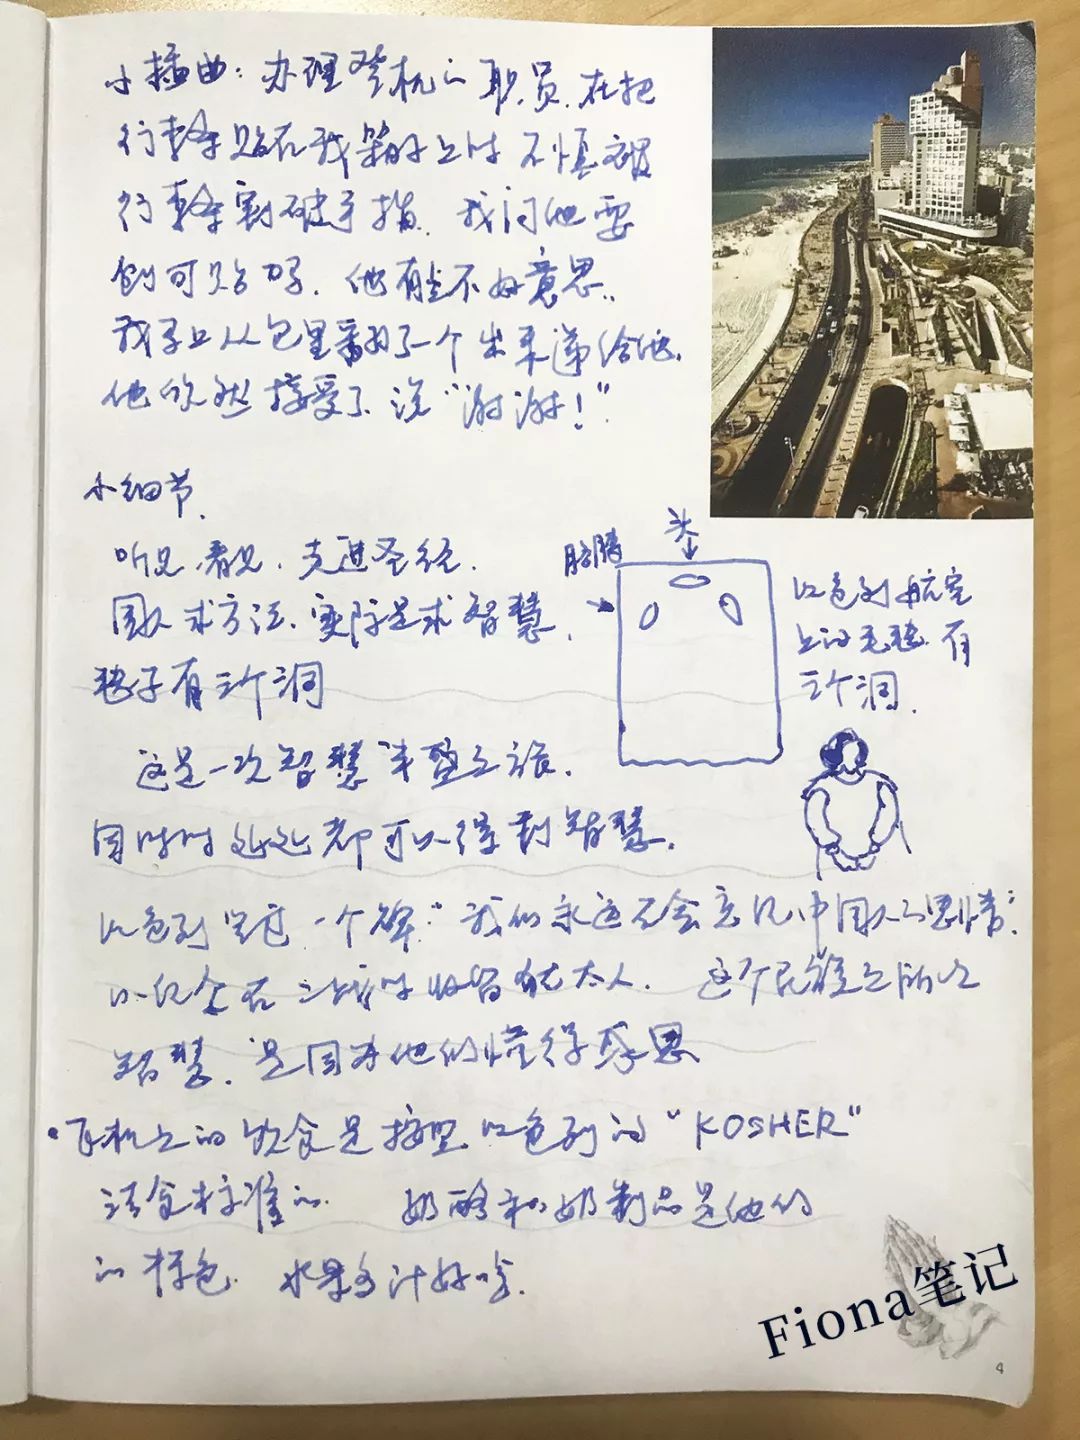 小插曲：办理登机的职员，在把
行李条贴在我箱子上时 不慎被
行李条割破手指，我问他要
创可贴吗，他有些不好意思，
我立即从包里翻了一个出来递给他，
他欣然接受了，说“谢谢！”
小细节，
听见，看见，走进圣经，
国人求方法，实际是求智慧，
毯子有三个洞
头
胳膊
以色列航空
上的毛毯，有
三个洞，
这是一次智慧丰盛之旅，
因时时处处都可以得到智慧，
以色列 一个碑“我们永远不会忘记中国人的恩情”
以纪念在二战时收留犹太人，这个民族之所以
智慧，是因为他们懂得感恩
·飞机上的饮食是按照以色列的“KOSHER”
洁食标准的 奶酪和奶制品是他们
的特色，水果多汁好吃，
Fiona笔记
4